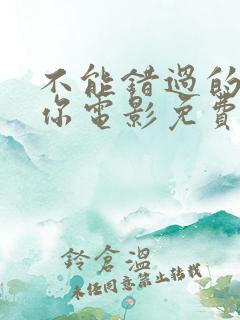 不能错过的
你电影免費
鈴倉溫
未经同意禁止转载